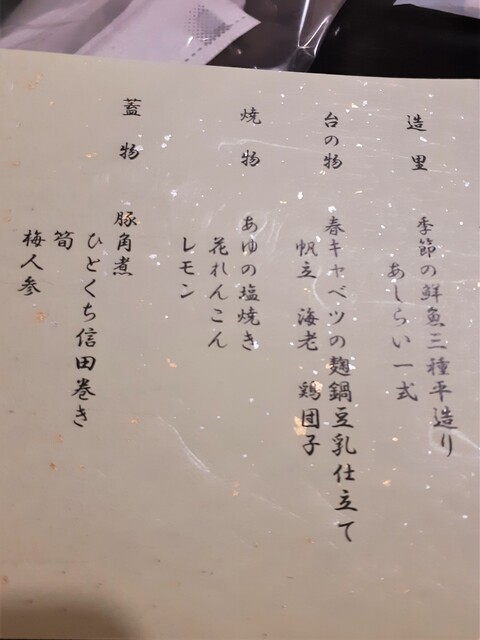 造里
季節の鮮魚三種平造り
あしらい一式
台の物
春キャベツの麹鍋豆乳仕立て
帆立 海老 鶏団子
焼物
あゆの塩焼き
花れんこん
レモン
蓋物
豚角煮
ひとくち信田巻き
筍
梅人参